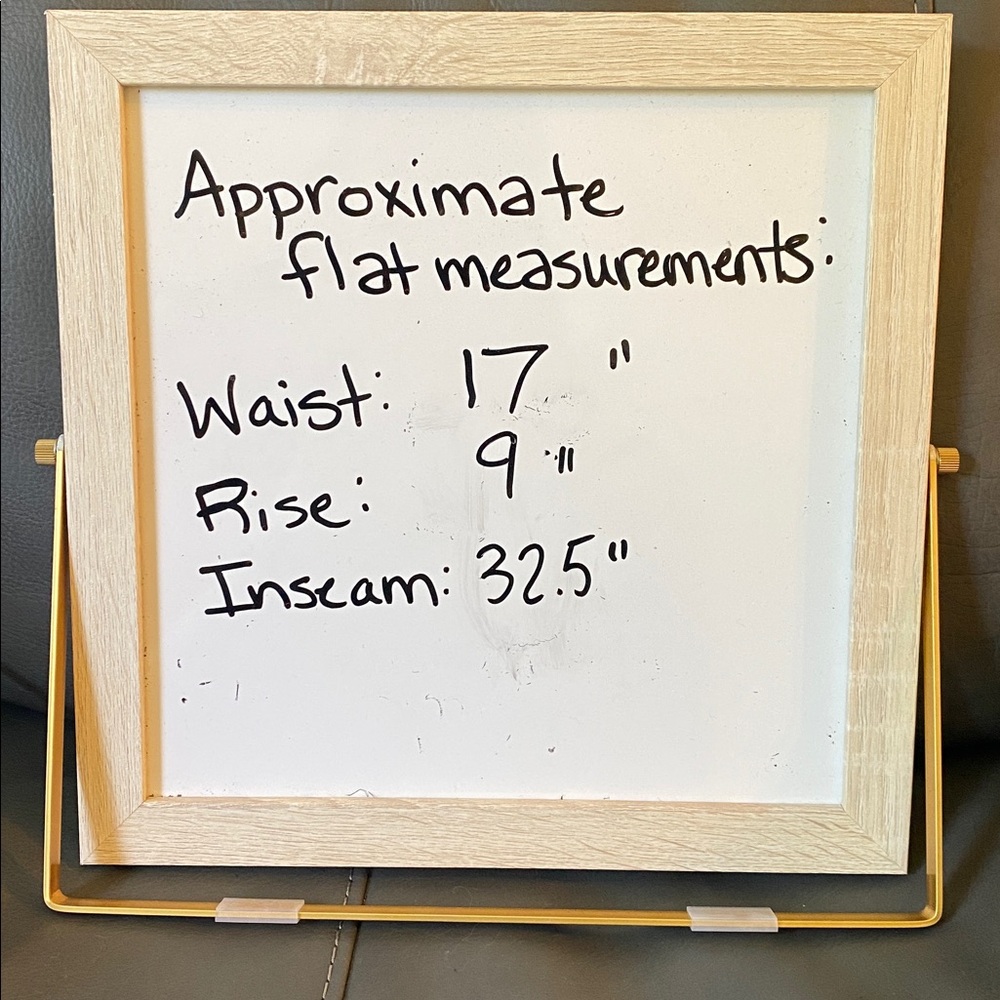 Approximate
flat measurements:
Waist: 17 "
Rise: 9 "
Inseam: 32.5"